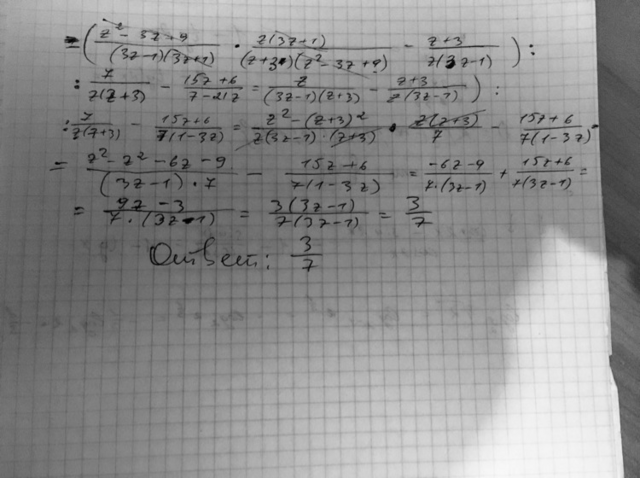 = ( (z² - 3z + 9)/((3z-1)(3z+1)) · (z(3z+1))/((z+3)(z² - 3z + 9)) - (z+3)/(z(3z-1)) ) :
: 7/(z(z+3)) - (15z+6)/(7-21z) = ( z/((3z-1)(z+3)) - (z+3)/(z(3z-1)) ) :
: 7/(z(z+3)) - (15z+6)/(7(1-3z)) = (z² - (z+3)²)/(z(3z-1)·(z+3)) · (z(z+3))/7 - (15z+6)/(7(1-3z)) =
= (z² - z² - 6z - 9)/((3z-1)·7) - (15z+6)/(7(1-3z)) = (-6z-9)/(7·(3z-1)) + (15z+6)/(7(3z-1)) =
= (9z-3)/(7·(3z-1)) = (3(3z-1))/(7(3z-1)) = 3/7
Ответ: 3/7